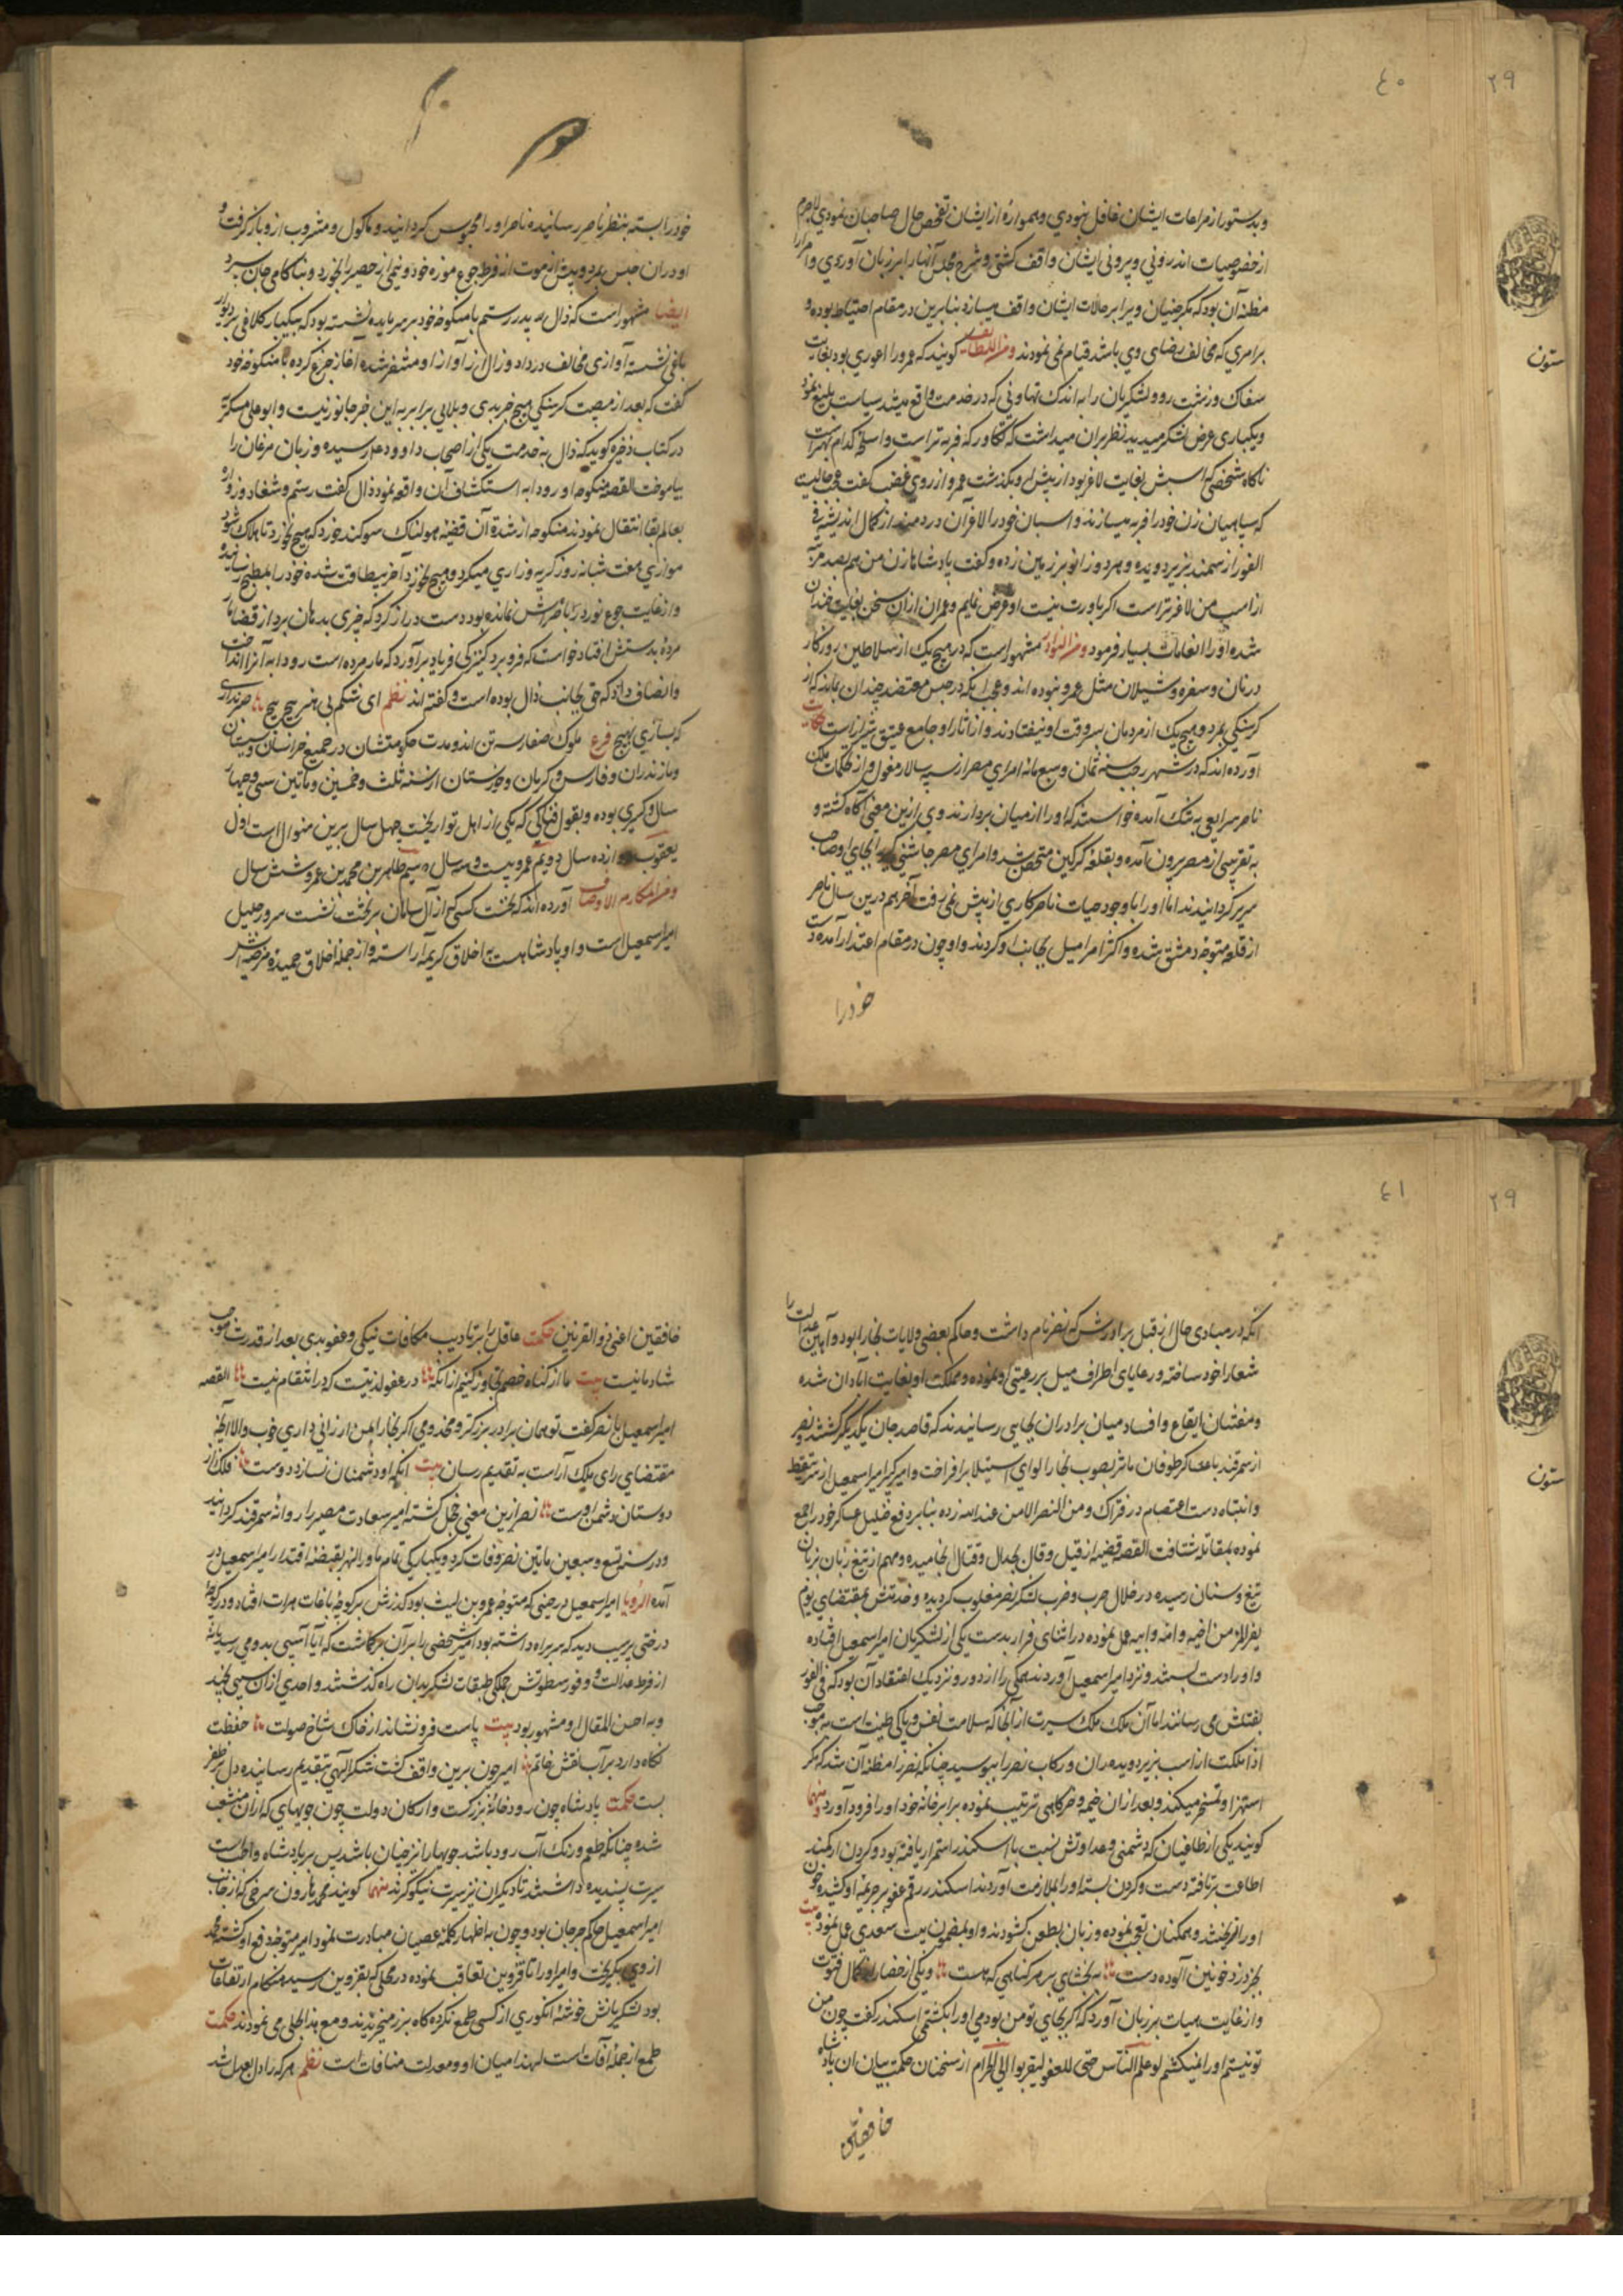 ٤٠
٢٩
وبدستور از مراعات ایشان غافل نبودی و همواره از ایشان تفحص حال صاحبان نمودی لاجرم
از خصوصیات اندرونی و بیرونی ایشان واقف کشتی و شرح مجلس آنها را بر زبان آوردی و امرا را
مظنه آن بود که مکر جنیان ویرا بر حالات ایشان واقف میسازد بنابرین در مقام احتیاط بوده و
بر امری که مخالف رضای وی باشد قیام نمی نمودند ومن اللطایف کویند که عمرو را اعوری بود بغایت
سفاک و زشت رو و لشکریان را به اندک تهاونی که در خدمت واقع میشد سیاست بلیغ نمود
ویکباری عرض لشکر میدید نظر بران میداشت که تکاور که فربه تر است و اسلحه کدام بهتر است
ناکاه شخصی که اسبش بغایت لاغر بود از پیش او بکذشت عمرو از روی غضب کفت عجب حالیست
که سپاهیان زن خود را فربه میسازند و اسبان خود را لاغر آن دردمند از کمال اندیشه فی
الفور از سمند بزیر دویده و هر دو زانو بر زمین زده و کفت پادشاها زن من هم بصد مرتبه
از اسپ من لاغرتر است اکر باورت نیست او عرض نمایم و عمر از آن سخن بغایت خندان
شده او را انعامات بسیار فرمود ومن النوادر مشهور است که در هیچ یک از سلاطین روزکار
در نان و سفره و شیلان مثل عمرو نبوده اند و عجب آنکه در حبس معتضد چندان بماند که از
کرسنکی بمرد و هیچ یک از مردمان بسر وقت او نیفتادند و از آثار او جامع عتیق شیراز است حکایت
آورده اند که در شهر رجب سنه ثمان و سبعمائه امرای مصر از سپه سالار مغول و از تحکمات ملک
ناصر سرایی به تنک آمده خواستند که او را از میان بردارند وی ازین معنی آکاه کشته و
به تقریبی از مصر بیرون آمده و بقلعه کرکین متحصن شد و امرای مصر جاشنی کیر را بجای او صاحب
سریر کردانیدند اما او را با وجود حیات ناصر کاری از پیش نمی رفت آخر هم درین سال ناصر
از قلعه متوجه دمشق شده و اکثر امرا میل بجانب او کردند و او چون در مقام اعتذار آمده دست
خود را
ستون
خود را بسته بنظر ناصر رسانیده ناصر او را محبوس کردانید و ماکول و مشروب از و باز کرفت و
او در آن حبس بمرد و پیش از موت از فرط جوع موزه خود و نیمی از حصیر را بخورد و بناکامی جان سپرد
ایضا مشهور است که ذال پدر رستم با منکوحه خود بر سر مایده نشسته بود که بیکبار کلاغی بر دیوار
باغی نشسته آوازی مخالف در داد و زال از آواز او متنفر شده آغاز جزع کرده با منکوحه خود
کفت که بعد از مصیبت کرسنکی هیچ خبر بدی و بلایی برابر به این خبر جانور نیست و ابو علی مسکویه
در کتاب ذخیره کوید که ذال به خدمت یکی از اصحاب داوود ع رسیده و زبان مرغان را
بیاموخت القصه منکوحه او رودابه استکشاف آن واقعه نمود ذال کفت رستم و شغاد و زواره
بعالم بقا انتقال نمودند منکوحه از شدة آن قضیه هولناک سوکند خورد که هیچ نخورد تا هلاک شود
موازی هفت شبانه روز کریه و زاری میکرد و هیچ نخورد آخر بیطاقت شده خود را بمطبخ رسانیده
و از غایت جوع نور در باصره اش نمانده بود دست دراز کرد که چیزی بدهان برد از قضا مار
مرده بدستش افتاد خواست که فرو برد کنیزکی فریاد برآورد که مار مرده است رودابه آنرا انداخت
و انصاف داد که حق بجانب ذال بوده است و کفته اند نظم ای شکم بی هنر پیچ پیچ صبر نداری
که بسازی بهیچ فرع ملوک صفاریه سه تن اند و مدت حکومتشان در جمیع خراسان و سیستان
و مازندران و فارس و کرمان و خوزستان از سنه ثلث و خمسین و ماتین سی و چهار
سال و کسری بوده و بقول فناکتی که یکی از اهل تواریخست چهل سال برین منوال است اول
یعقوب دوازده سال دویم عمرو بیست و سه سال سیم طاهر بن محمد بن عمرو شش سال
ومن مکارم الاوصاف آورده اند که نخست کسی که از آل سامان بر تخت نشست سرور جلیل
امیر اسمعیل است و او پادشاهیست به اخلاق کریمه آراسته و از جمله اخلاق حمیده مرضیه اش
٤١
٢٩
آنکه در مبادی حال از قبل برادرش که نصر نام داشت و حاکم بعضی ولایات بخارا بود و آیین عدالت را
شعار خود ساخته و رعایای اطراف میل بر رعیتی او نموده و مملکت او بغایت آبادان شده
و مفتنان ایقاع و افساد میان برادران بجایی رسانیدند که قاصد جان یکدیکر کشتند و نصر
از سمرقند با عساکر طوفان ماثر بصوب بخارا لوای استیلا برافراخت و امیر کبیر امیر اسمعیل از سر تیقظ
و انتباه دست اعتصام در فتراک و من النصر الا من عند الله زده بنابر دفع غلیل عساکر خود را جمع
نموده بمقابله شتافت القصه قضیه از قیل و قال بجدال و قتال انجامیده و مهم از تیغ زبان بزبان
تیغ و سنان رسیده در خلال حرب و ضرب لشکر نصر مغلوب کردیده و خدمتش بمقتضای یوم
یفر المرء من اخیه و امه و ابیه عمل نموده در اثنای فرار بدست یکی از لشکریان امیر اسمعیل افتاده
و او را دست بستند و نزد امیر اسمعیل آوردند همکی را از دور و نزدیک اعتقاد آن بود که فی الفور
بقتلش می رسانند اما آن ملک ملک سیرت از آنجا که سلامت نفس و پاکی طینت است به موجب
اذا ملکت از اسب بزیر دویده ران و رکاب نصر را ببوسید چنانکه نصر را مظنه آن شد که مکر
استهزا و تمسخر میکند و بعد از ان خیمه و خرکاهی ترتیب نموده برابر خانه خود او را فرود آورد منها
کویند یکی از طاغیان که دشمنی و عداوتش نسبت با اسکندر استمرار یافته بود و کردن از کمند
اطاعت برتافته دست و کردن بسته او را بملازمت آوردند اسکندر رقم عفو بر جریمه او کشیده چون
او را نبخشند و همکنان تعجب نموده و زبان بطعن کشودند و او بمضمون بیت سعدی عمل نمود بیت
به خون آلوده دست به بخشای بر هر کناهی که هست و یکی از حضار از کمال فتوت
و از غایت هیبات بر زبان آورد که اکر بجای تو من بودمی او را بکشتمی اسکندر کفت چون من
تو نیستم او را نمیکشم لو علم الناس حبی للعفو لیقربوا الی الجرائم از سخنان حکمت بیان ان پادشاه
خافقین
ستون
خافقین اعنی ذوالقرنین حکمت عاقل را بر تادیب مکافات نیکی و عفو بدی بعد از قدرت موجب
شادمانیست بیت ما از کناه خصم تجاوز کنیم از آنکه در عفو لذتیست که در انتقام نیست القصه
امیر اسمعیل با نصر کفت تو همان برادر بزرکتر و مخدومی اکر بخارا بمن ارزانی داری خوب والا آنچه
مقتضای رای ملک آراست به تقدیم رسان بیت آنکه او دشمنان نسازد دوست فلک از
دوستان دشمن اوست نصر ازین معنی خجل کشته امیر سعادت مصیر را روانه سمرقند کردانید
و در سنه تسع و سبعین ماتین نصر وفات کرد و یکبارکی تمام ماوراالنهر بقبضه اقتدار امیر اسمعیل در
آمده الرویا امیر اسمعیل در حینی که متوجه عمرو بن لیث بود کذرش بر کوچه باغات هرات افتاد و در کوچه
درختی پر سیب دید که سر براه داشته بود امیر شخصی را بر آن برکماشت که آیا آسیبی بدو می رسد یا نه
از فرط عدالت و وفور سطوتش جملکی طبقات لشکر بدان راه کذشتند و احدی از آن سیبی نچید
وبه احسن المقال او مشهور بود بیت پاست فرو نشاند از خاک شاخ صولت حفظت
نکاه دارد بر آب نقش خاتم امیر چون برین واقف کشت شکر الهی بتقدیم رسانیده دل بر ظفر
بست حکمت پادشاه چون رودخانه بزرکست و ارکان دولت چون جویهای که از آن منشعب
شده چنانکه طعم و رنک آب رود باشد جویها را نیز چنان باشد پس بر پادشاه واجبست
سیرت پسندیده داشتند تا دیکران نیز سیرت نیکو کرند منها کویند محمد هارون سرخی که از جانب
امیر اسمعیل حاکم جرجان بود و چون به اظهار کلمه عصیان مبادرت نمود امیر متوجه دفع او کشته محمد
از وی بکریخت و امیر او را تا قزوین تعاقب نموده در محلی که بقزوین رسید هنکام ارتفاعات
بود لشکریانش خوشه انکوری از کسی طمع نکرده کاه بزر میخریدند و مع هذا بحلی می نمودند حکمت
طمع از جمله آفات است لهذا میان او و مورات منافات است نظم هر که را دل بعدل شد